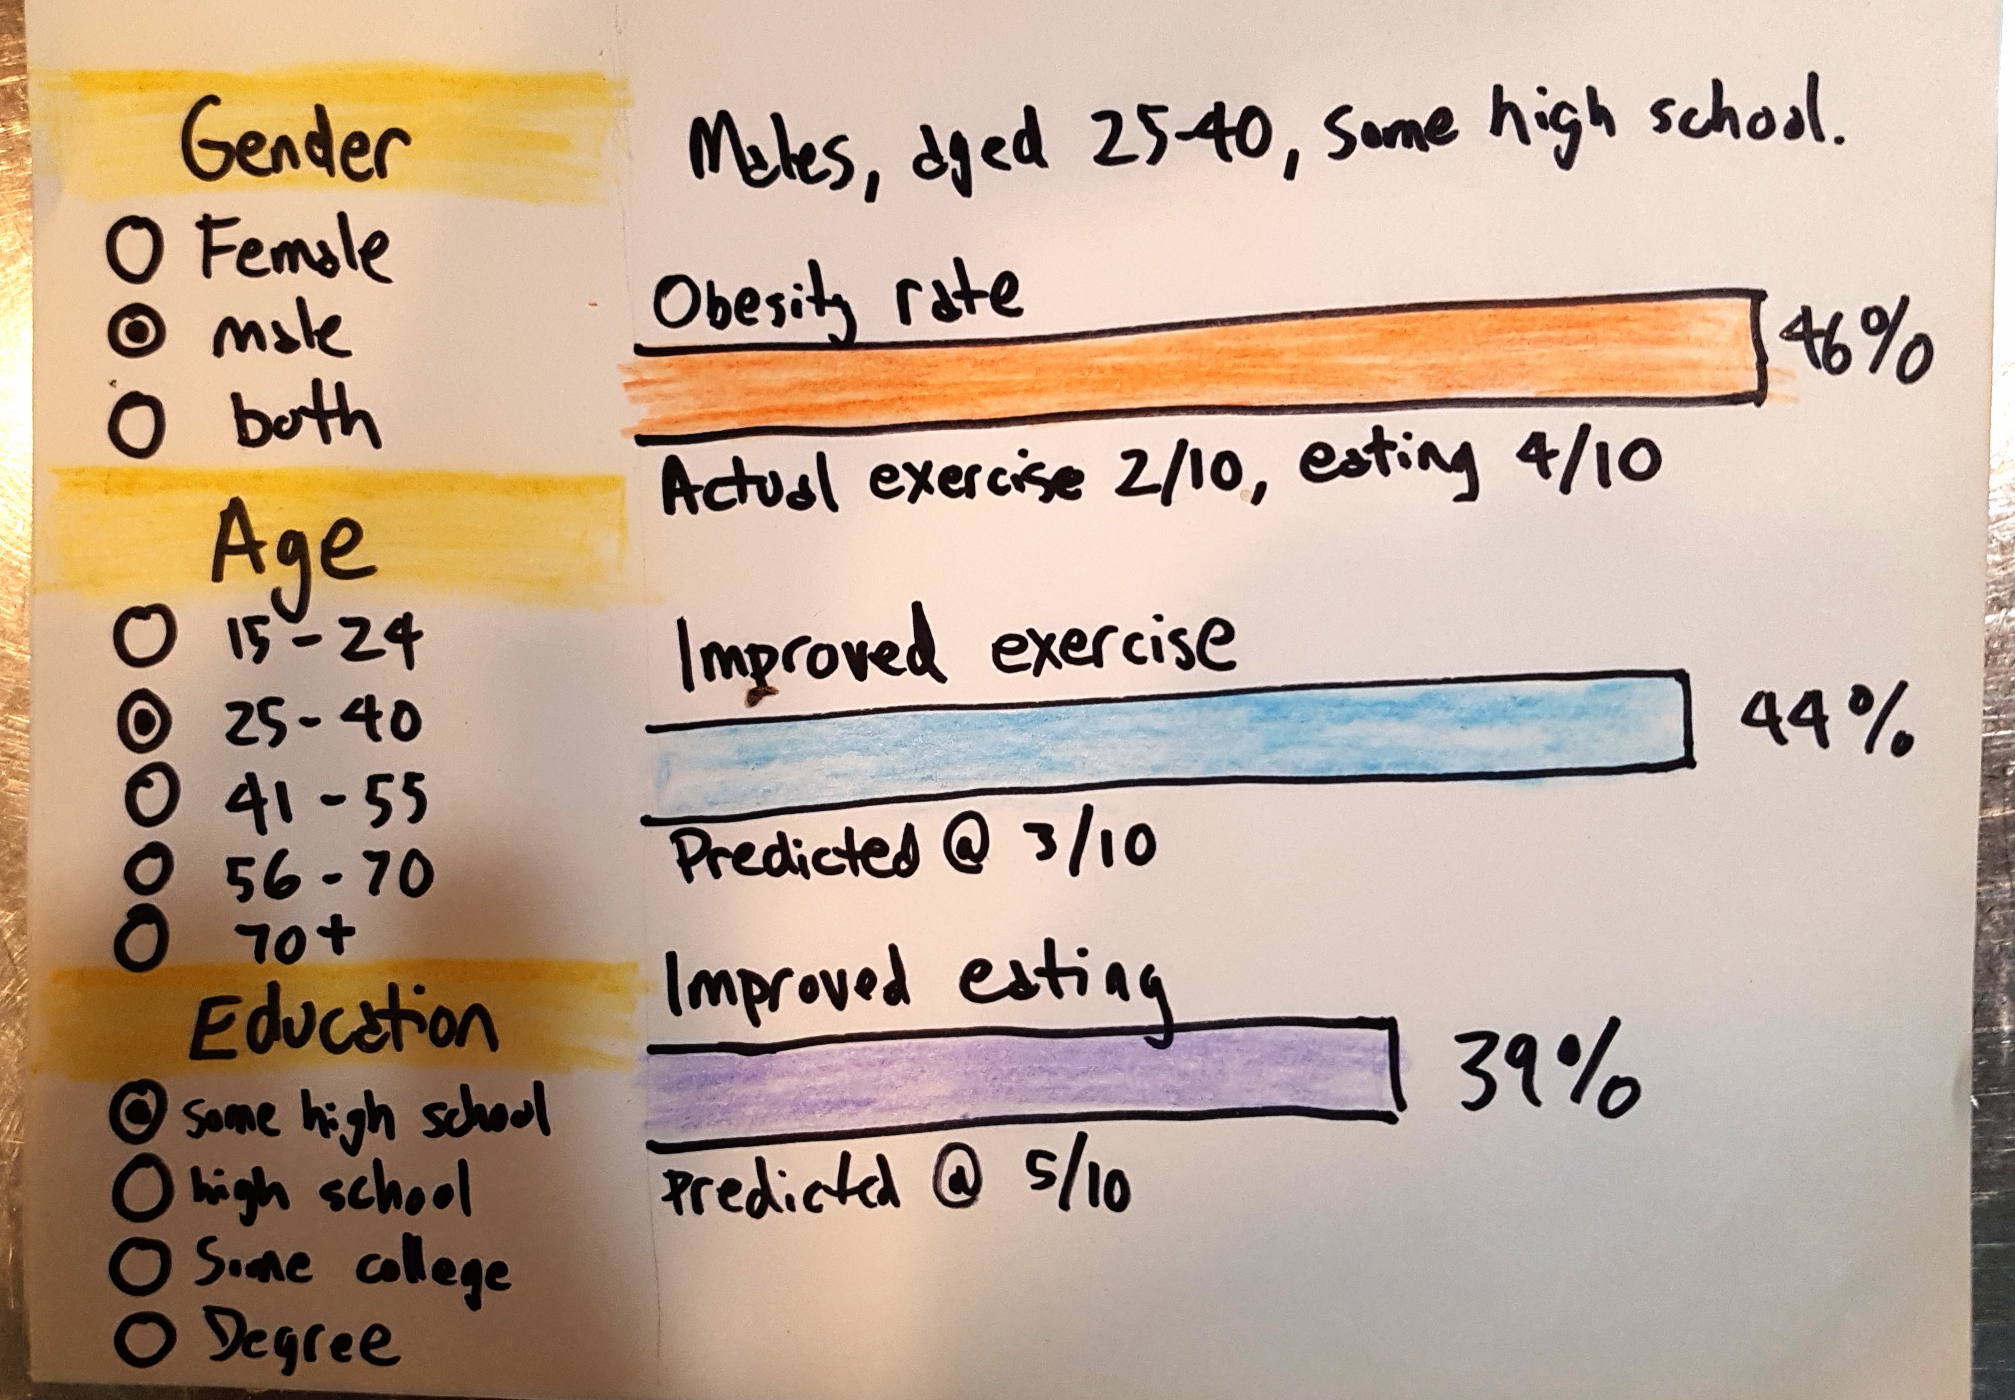 Gender
Female
male
both
Age
15-24
25-40
41-55
56-70
70+
Education
Some high school
high school
Some college
Degree
Males, aged 25-40, Some high school.
Obesity rate
46%
Actual exercise 2/10, eating 4/10
Improved exercise
44%
Predicted @ 3/10
Improved eating
39%
Predicted @ 5/10